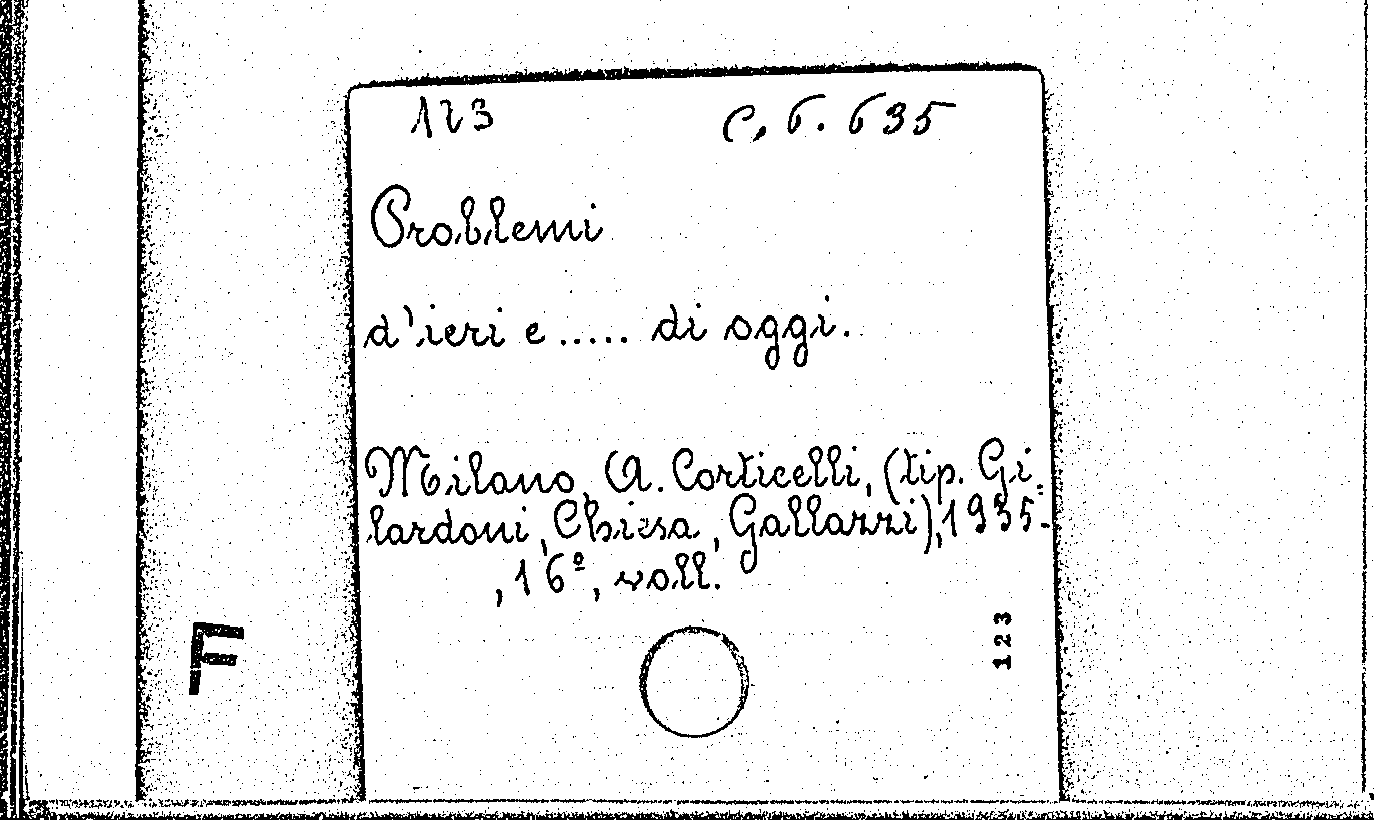 123 C. 6. 635
Problemi
d'ieri e ..... di oggi.
Milano, A. Corticelli, (tip. Gi-
lardoni, Chiesa, Gallazzi), 1935-
, 16º, voll.
123
F